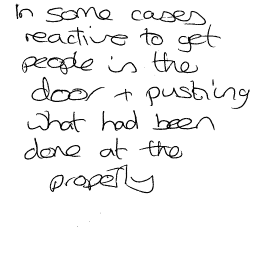 In some cases
reactive to get
people in the
door + pushing
what had been
done at the
property